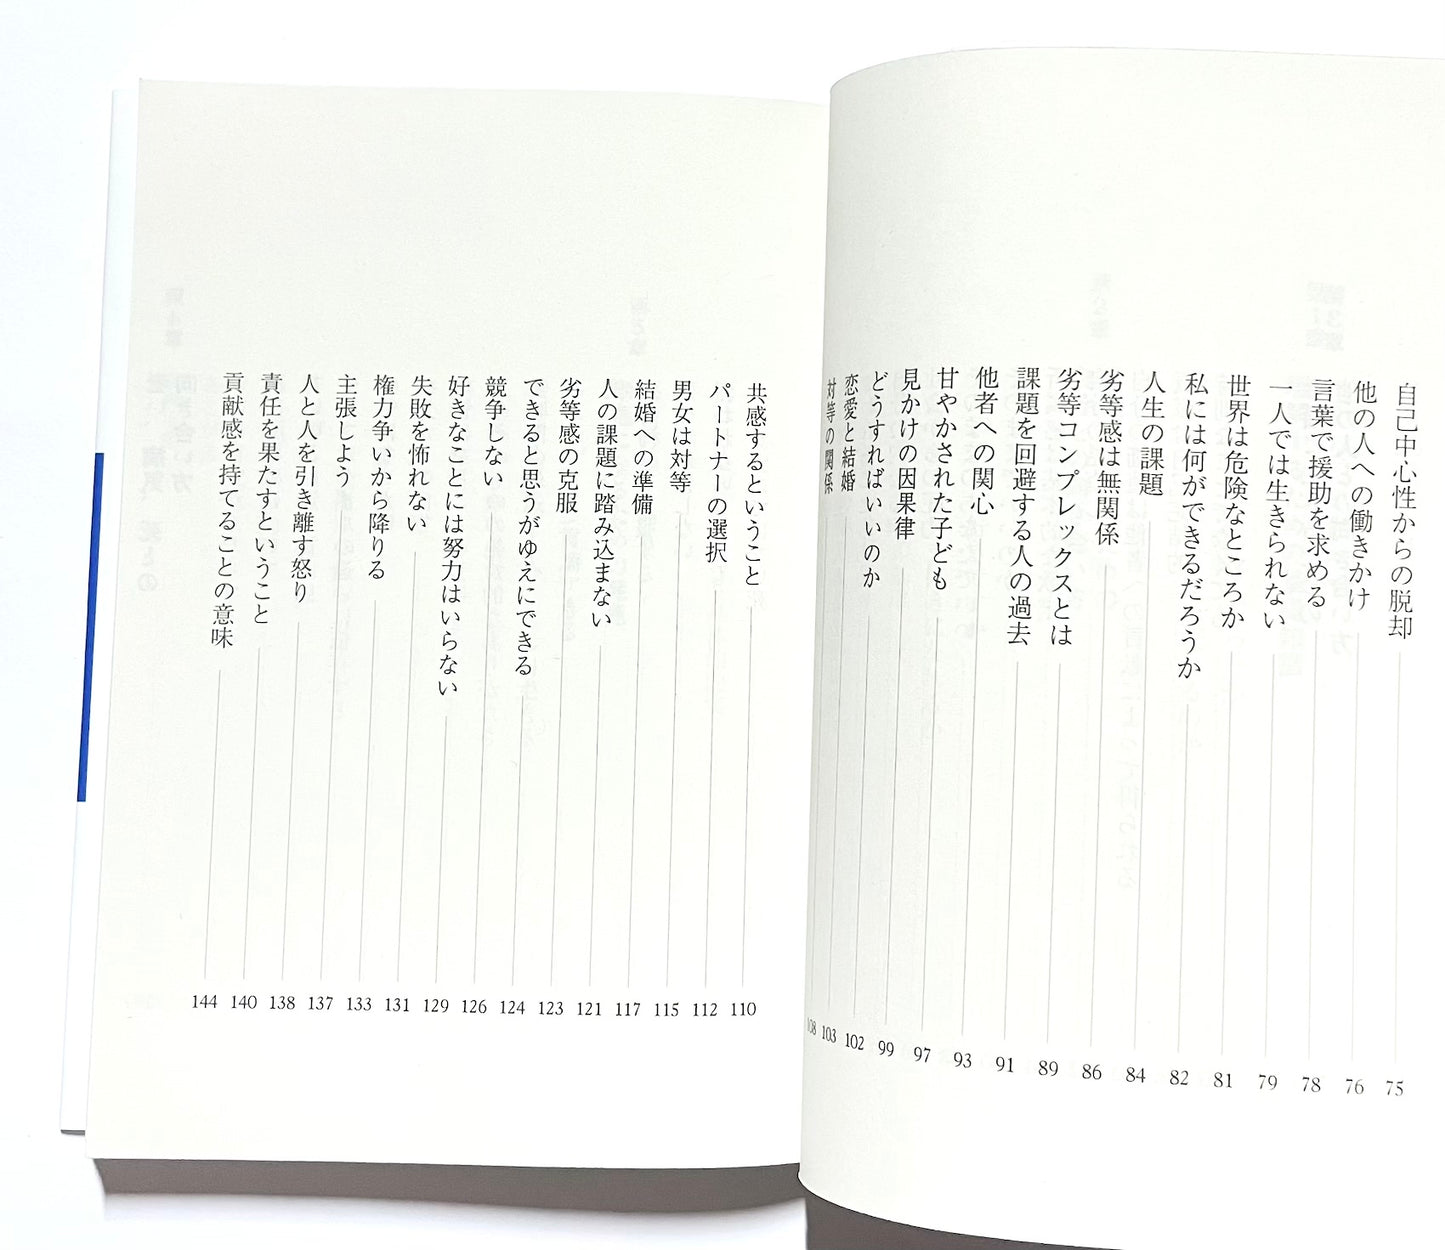 自己中心性からの脱却 75
他の人への働きかけ 76
言葉で援助を求める 78
一人では生きられない 79
世界は危険なところか 81
私には何ができるだろうか 82
人生の課題 84
劣等感は無関係 86
劣等コンプレックスとは 89
課題を回避する人の過去 91
他者への関心 93
甘やかされた子ども 97
見かけの因果律 99
どうすればいいのか 102
恋愛と結婚 103
対等の関係 108
共感するということ 110
パートナーの選択 112
男女は対等 115
結婚への準備 117
人の課題に踏み込まない 121
劣等感の克服 123
できると思うがゆえにできる 124
競争しない 126
好きなことには努力はいらない 129
失敗を怖れない 131
権力争いから降りる 133
主張しよう 137
人と人を引き離す怒り 138
責任を果たすということ 140
貢献感を持てることの意味 144